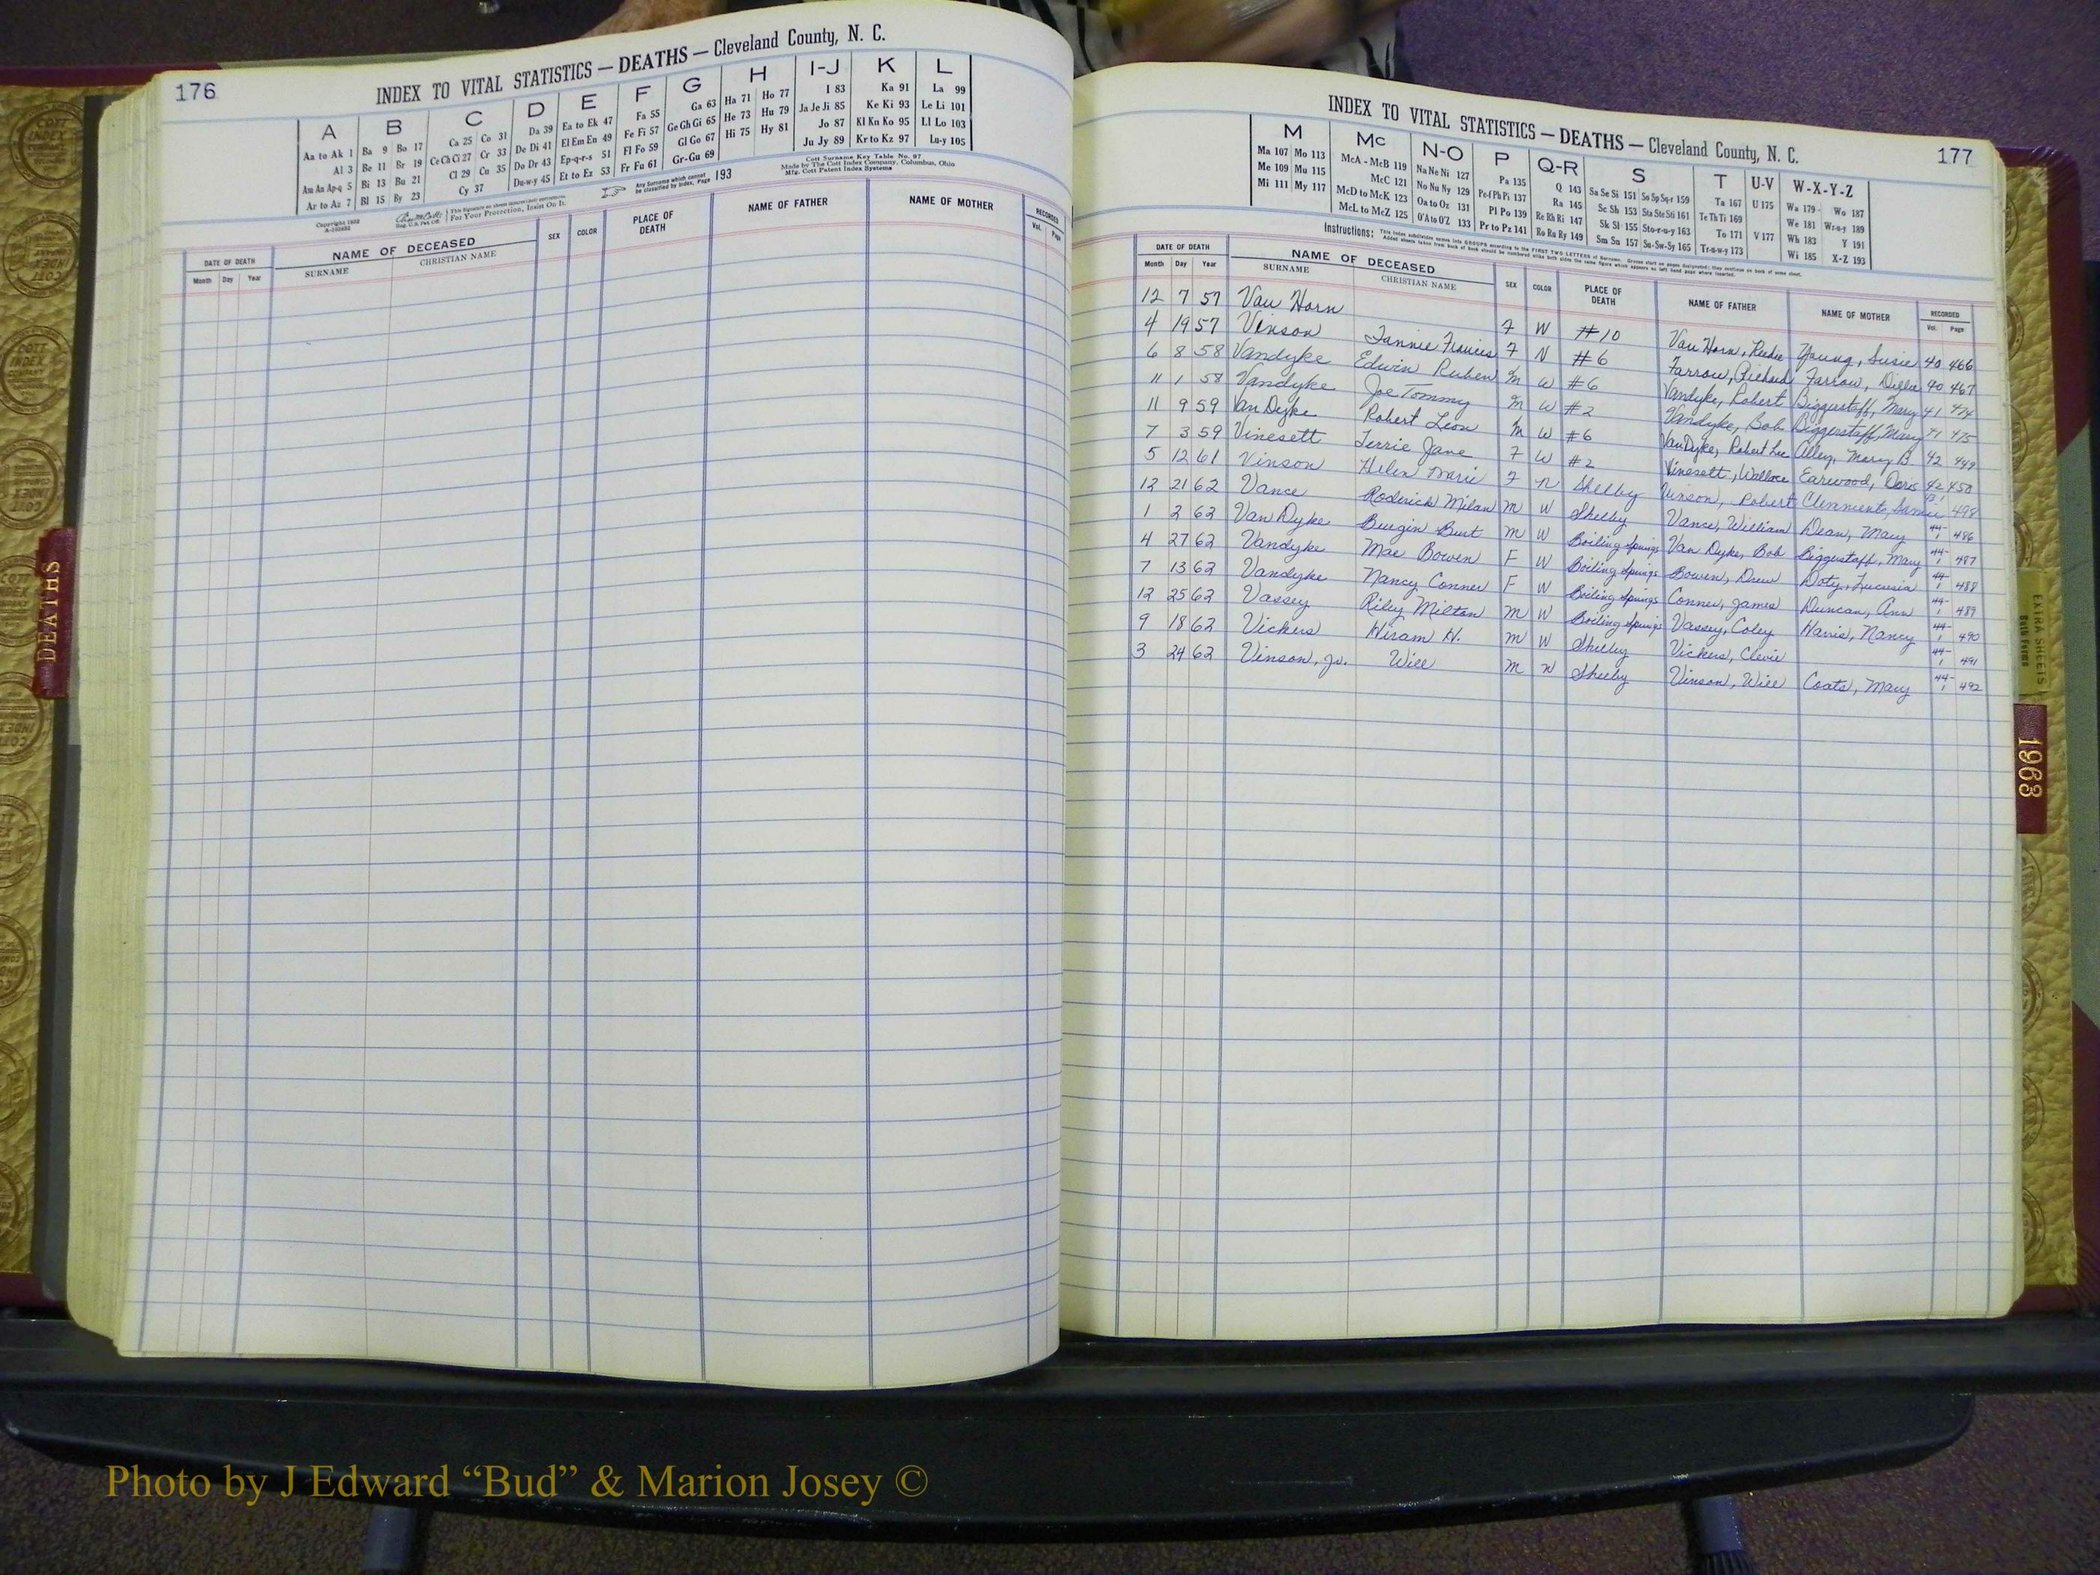 176
INDEX TO VITAL STATISTICS — DEATHS — Cleveland County, N. C.
A B C D E F G H I-J K L
Aa to Ak 1 Ba 9 Bo 17 Ca 25 Co 31 Da 39 Ea to Ek 47 Fa 55 Ga 63 Ha 71 Ho 77 I 83 Ka 91 La 99
Al 3 Be 11 Br 19 Ce Ch Ci 27 Cr 33 De Di 41 El Em En 49 Fe Fi 57 Ge Gh Gi 65 He 73 Hu 79 Ja Je Ji 85 Ke Ki 93 Le Li 101
Am An Ap-q 5 Bi 13 Bu 21 Cl 29 Cu 35 Do Dr 43 Ep-q-r-s 51 Fl Fo 59 Gl Go 67 Hi 75 Hy 81 Jo 87 Kl Kn Ko 95 Ll Lo 103
Ar to Az 7 Bl 15 By 23 Cy 37 Du-w-y 45 Et to Ez 53 Fr Fu 61 Gr-Gu 69 Ju Jy 89 Kr to Kz 97 Lu-y 105
Any Surname which cannot be classified by Index, Page 193
Cott Surname Key Table No. 97
Made by The Cott Index Company, Columbus, Ohio
Mfg. Cott Patent Index Systems
For Your Protection, Insist On It.
DATE OF DEATH NAME OF DECEASED SEX COLOR PLACE OF DEATH NAME OF FATHER NAME OF MOTHER RECORDED
Month Day Year SURNAME CHRISTIAN NAME Vol. Page
DEATHS
INDEX TO VITAL STATISTICS — DEATHS — Cleveland County, N. C.
177
M Mc N-O P Q-R S T U-V W-X-Y-Z
Ma 107 Mo 113 McA - McB 119 Na Ne Ni 127 Pa 135 Q 143 Sa Se Si 151 So Sp Sq-r 159 Ta 167 U 175 Wa 179 Wo 187
Me 109 Mu 115 McC 121 No Nu Ny 129 Pe-f Ph Pi 137 Ra 145 Sc Sh 153 Sta Ste Sti 161 Te Th Ti 169 We 181 Wr-u-y 189
Mi 111 My 117 McD to McK 123 Oa to Oz 131 Pl Po 139 Re Rh Ri 147 Sk Sl 155 Sto-r-u-y 163 To 171 V 177 Wh 183 Y 191
McL to McZ 125 O'A to O'Z 133 Pr to Pz 141 Ro Ru Ry 149 Sm Sn 157 Su-Sw-Sy 165 Tr-u-w-y 173 Wi 185 X-Z 193
Instructions:
DATE OF DEATH NAME OF DECEASED SEX COLOR PLACE OF DEATH NAME OF FATHER NAME OF MOTHER RECORDED
Month Day Year SURNAME CHRISTIAN NAME Vol. Page
12 7 57 Van Horn F W #10 Van Horn, Young, Susie 40 466
4 19 57 Vinson Fannie Francis F N #6 Farrow, Richard Farrow, Dellie 40 467
6 8 58 Vandyke Edwin Ruben M W #6 Vandyke, Robert Biggerstaff, Mary 41 474
11 1 58 Vandyke Joe Tommy M W #2 Vandyke, Bob Biggerstaff, Mary 41 475
11 9 59 Van Dyke Robert Leon M W #6 Van Dyke, Robert Lee Alley, Mary B 42 449
7 3 59 Vinesett Terrie Jane F W #2 Vinesett, Wallace Earwood, Doris 42 450
5 12 61 Vinson Helen Marie F N Shelby Vinson, Robert Clemments, 43 1 498
12 21 62 Vance Roderick Milan M W Shelby Vance, William Dean, Mary 44-1 486
1 2 62 Van Dyke Burgin Burt M W Boiling Springs Van Dyke, Bob Biggerstaff, Mary 44-1 487
4 27 62 Vandyke Mae Bowen F W Boiling Springs Bowen, Drew Doty, Lucusia 44-1 488
7 13 62 Vandyke Nancy Conner F W Boiling Springs Conner, James Duncan, Ann 44-1 489
12 25 62 Vassey Riley Milton M W Boiling Springs Vassey, Coley Harris, Nancy 44-1 490
9 18 62 Vickers Hiram H. M W Shelby Vickers, Clevie 44-1 491
3 24 62 Vinson, Jr. Will M N Shelby Vinson, Will Coats, Mary 44-1 492
EXTRA SHEETS
Both Forms
1963
Photo by J Edward “Bud” & Marion Josey ©